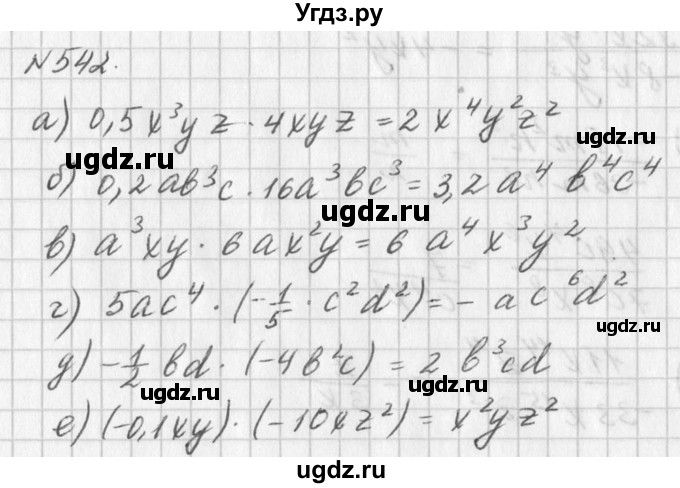 Угдз.ру
№542.
а) 0,5x³yz · 4xyz = 2x⁴y²z²
ugdz.ru
ugdz.ru
б) 0,2ab³c · 16a³bc³ = 3,2a⁴ b⁴c⁴
ugdz.ru
в) a³xy · 6ax²y = 6 a⁴x³y²
г) 5ac⁴ · (-1/5 · c²d²) = - ac⁶d²
ugdz.ru
ugdz.ru
д) -1/2 bd · (-4b²c) = 2 b³cd
ugdz.ru
ugdz.ru
е) (-0,1xy) · (-10xz²) = x²yz²
ugdz.ru